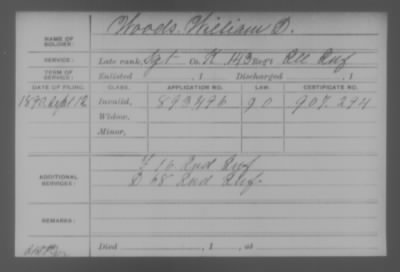 NAME OF SOLDIER: Woods, William D.
SERVICE: Late rank, Sgt Co. K, 143 Reg't Ill Inf
TERM OF SERVICE: Enlisted , 1 Discharged , 1
DATE OF FILING. CLASS. APPLICATION NO. LAW. CERTIFICATE NO.
1890 Sept 12 Invalid, 893496 90 907.294
Widow,
Minor,
ADDITIONAL SERVICES: 16 Ind Inf
D 68 Ind Inf.
REMARKS:
Died , 1 , at